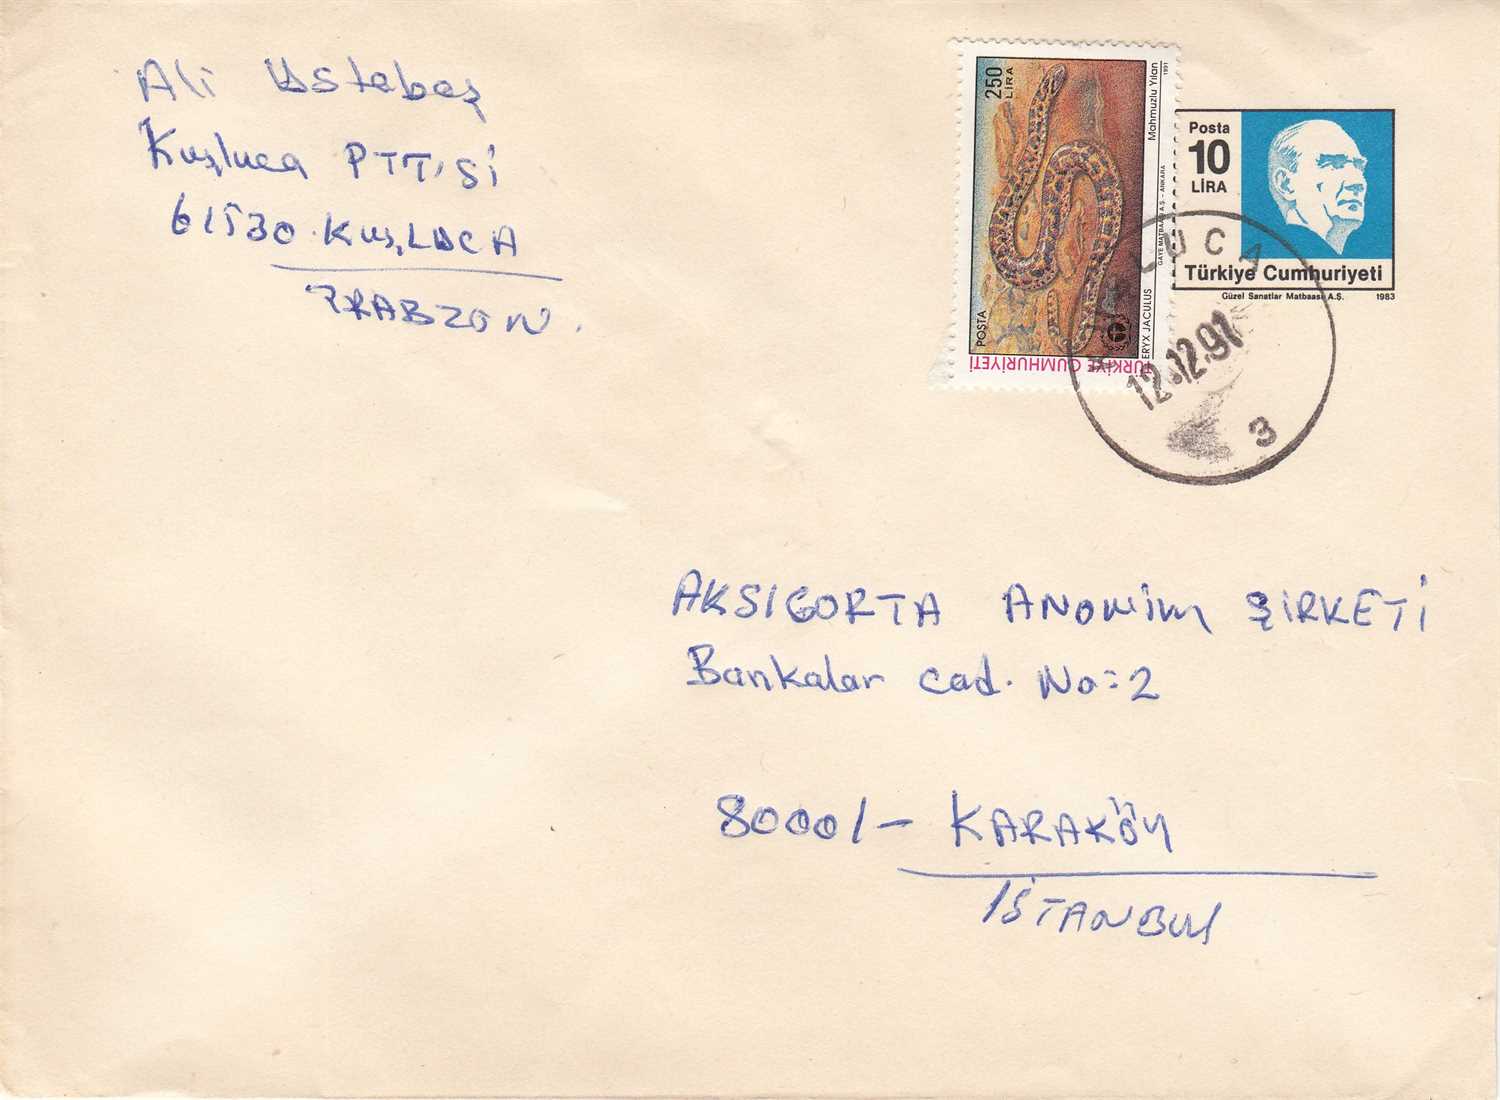 Ali Ustabaş
Kuşluca PTT'si
61530 - KUŞLUCA
TRABZON.
250
LİRA
Mahmuzlu Yılan
1991
POSTA
ERYX JACULUS
GAYE MATBAASI A.Ş. - ANKARA
TÜRKİYE CUMHURİYETİ
Posta
10
LİRA
Türkiye Cumhuriyeti
Güzel Sanatlar Matbaası A.Ş. 1983
LUCA
12.12.91
3
AKSIGORTA ANONİM ŞİRKETİ
Bankalar cad. No=2
80001- KARAKÖY
İSTANBUL